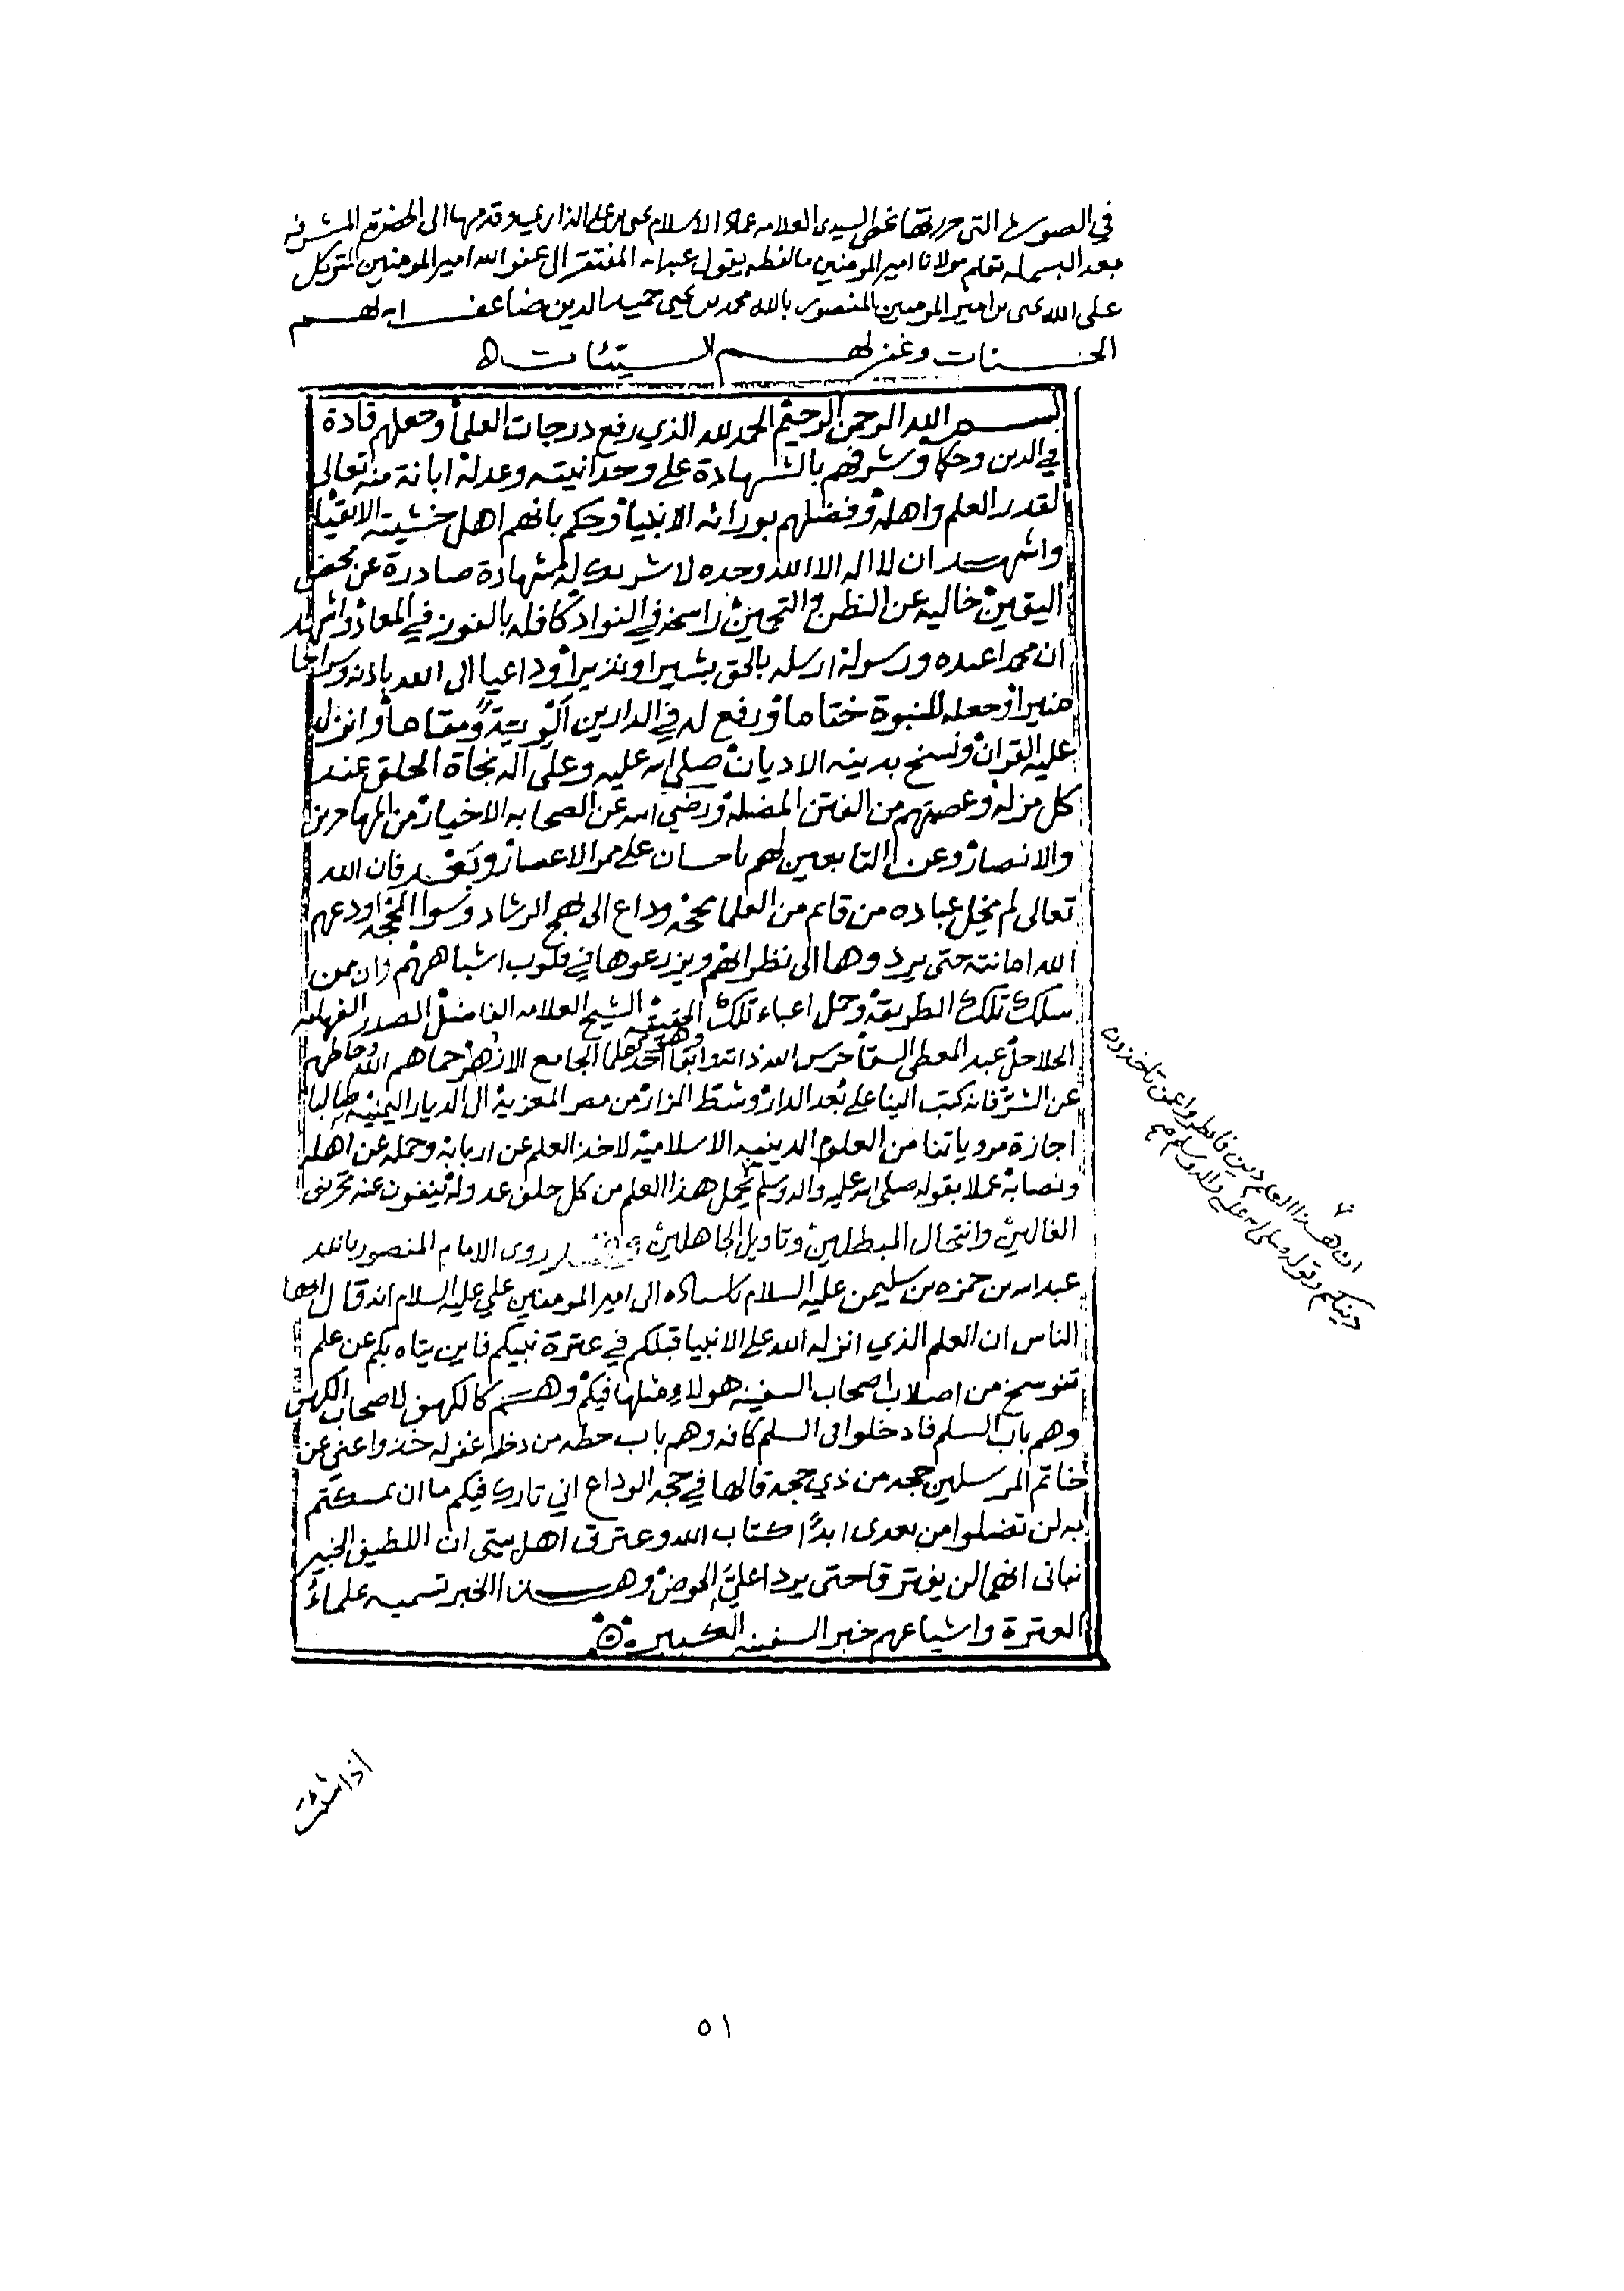 في الصورة التي حررتها بخط السيدي العلامه عماد الاسلام يحيى بن علي الذاري وقدمها الى الحضرة المشرفه
بعد البسمله بقلم مولانا امير المومنين ما لفظه يقول عبد الله المفتقر الى عفو الله امير المومنين المتوكل
على الله يحيى بن امير المومنين المنصور بالله محمد بن يحيى حميد الدين ضاعف الله لهم
الحسنات وغفر لهم السيئات
بسم الله الرحمن الرحيم الحمد لله الذي رفع درجات العلما وجعلهم قادة
في الدين وحكما وشرفهم بالشهادة على وحدانيته وعدله ابانة منه تعالى
لقدر العلم واهله وفضلهم بوراثه الانبيا وحكم بانهم اهل خشيته الاتقيا
واشهد ان لا اله الا الله وحده لا شريك له شهادة صادرة عن محض
اليقين خاليه عن الظن والتخمين راسخة في الفواد كافله بالفوز في المعاد واشهد
ان محمدا عبده ورسوله ارسله بالحق بشيرا ونذيرا وداعيا الى الله باذنه وسراجا
منيرا وجعله للنبوة ختاما ورفع له في الدارين رتبة ومقاما وانزل
عليه القران ونسخ بدينه الاديان صلى الله عليه وعلى اله نجاة الخلق عند
كل مزله وعصمتهم من الفتن المضله ورضي الله عن الصحابه الاخيار من المهاجرين
والانصار وعن التابعين لهم باحسان على ممر الاعصار وبعد فان الله
تعالى لم يخل عباده من قايم من العلما بحجه وداع الى نهج الرشاد وسوا المحجه اودعهم
الله امانته حتى يردوها الى نظرائهم ويزرعوها في قلوب اشباههم وان ممن
سلك تلك الطريقه وحمل اعباء تلك الحقيقه الشيخ العلامه الفاضل الصدر الفهامه
الحلاحل عبد المعطي السقا حرس الله ذاته وابقا وهو احد علما الجامع الازهر حماهم الله وحاطهم
عن الشر فانه كتب الينا على بعد الدار وشط المزار من مصر المعزية الى الديار اليمنيه طالبا
اجازة مروياتنا من العلوم الدينيه الاسلامية لاخذ العلم عن اربابه وحمله عن اهله
ونصابه عملا بقوله صلى الله عليه واله وسلم يحمل هذا العلم من كل خلف عدوله ينفون عنه تحريف
الغالين وانتحال المبطلين وتاويل الجاهلين وقد روى الامام المنصور بالله
عبد الله بن حمزه بن سليمن عليه السلام باسناده الى امير المومنين علي عليه السلام انه قال ايها
الناس ان العلم الذي انزله الله على الانبيا قبلكم في عترة نبيكم فاين يتاه بكم عن علم
تنوسخ من اصلاب اصحاب السفينه هولاء مثلها فيكم وهم كالكهف لاصحاب الكهف
وهم باب السلم فادخلوا في السلم كافه وهم باب حطه من دخله غفر له خذوا عني عن
خاتم المرسلين حجه من ذي حجه قالها في حجه الوداع اني تارك فيكم ما ان تمسكتم
به لن تضلوا من بعدى ابدًا كتاب الله وعترتى اهل بيتى ان اللطيف الخبير
نبانى انهما لن يفترقا حتى يردا عليّ الحوض وهذا الخبر تسميه علماءُ
العترة واشياعهم خبر السفينه الكبير
ان هذا العلم دين فانظروا عمن تاخذون
دينكم وقوله صلى الله عليه واله وسلم
اذا شئت
٥١